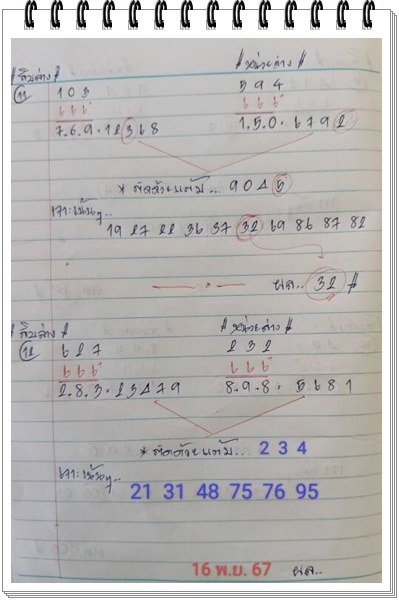 # สิบล่าง #
# หน่วยล่าง #
11
103
666
7.6.9.12368
594
666
1.5.0.6792
* ตัดด้วยแต้ม... 9045
เจาะเน้นๆ..
19 27 22 36 37 32 69 86 87 82
ผล.. 32 #
# สิบล่าง #
# หน่วยล่าง #
12
627
666
2.8.3.23479
232
666
8.9.8. 5681
* ตัดด้วยแต้ม.. 2 3 4
เจาะเน้นๆ..
21 31 48 75 76 95
16 พ.ย. 67 ผล..